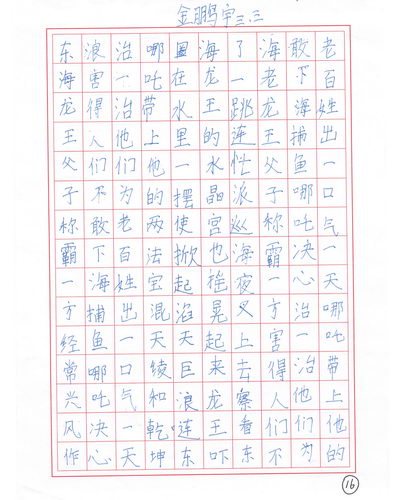 金鹏宇三.三
东海龙王父子称霸一方经常兴风作
浪害得人们不敢下海捕鱼哪吒决心
治一治他们为老百姓出一口气一天
哪吒带上他的两法宝混天绫和乾坤
圈在水里一摆使掀起滔天巨浪连东
海龙王的水晶宫也摇晃起来龙王吓
了一跳连忙派巡海夜叉上去察看东
海老龙王父子称霸一方害得人们不
敢下海捕鱼哪吒决心治一治他们为
老百姓出一口气一天哪吒带上他的
16